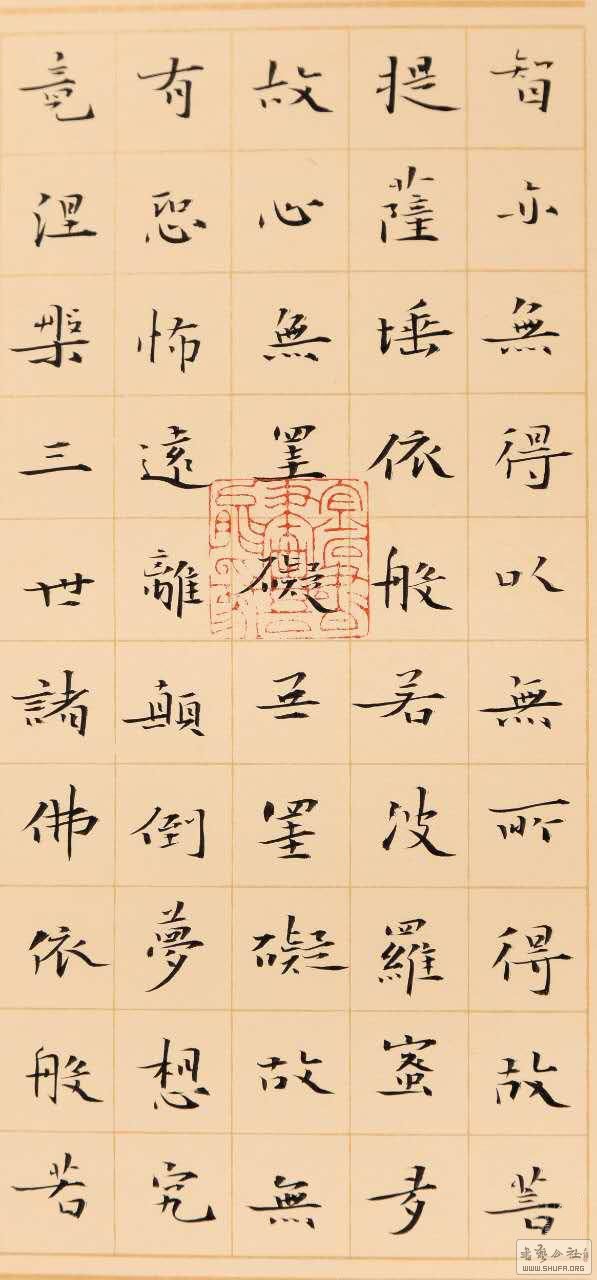 智亦無得以無所得故菩
提薩埵依般若波羅蜜多
故心無罣礙无罣礙故無
有恐怖遠離顛倒夢想究
竟涅槃三世諸佛依般若
WWW.SHUFA.ORG